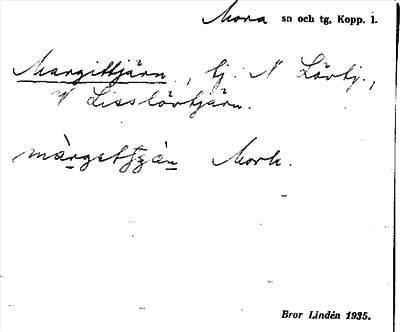 Mora sn och tg, Kopp. l.
Margittjärn, tj. N Lövtj.,
V Lisslövtjärn.
Mork.
Bror Lindén 1935.